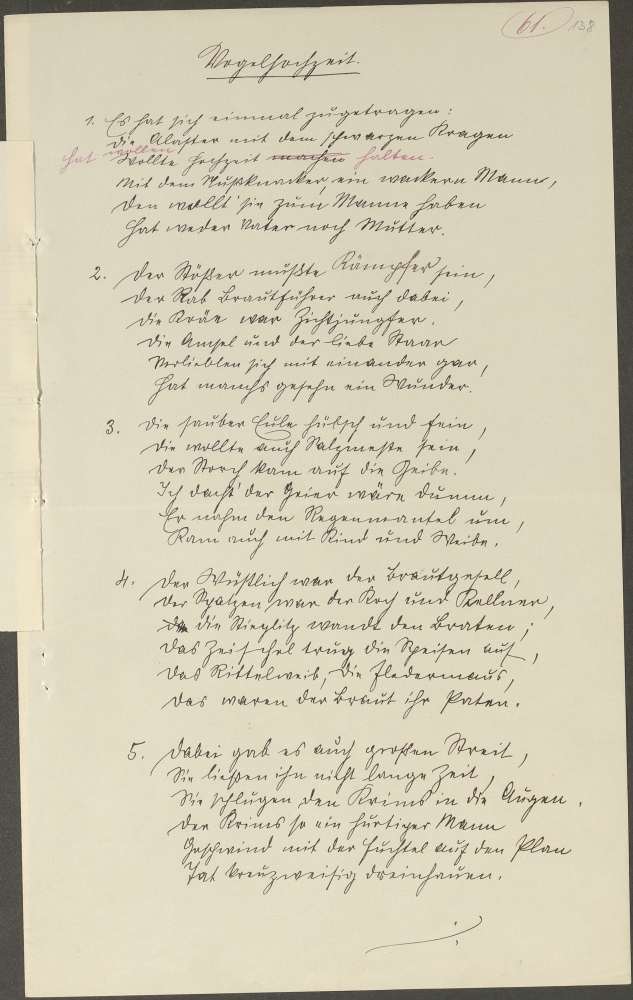 61. 138
Vogelhochzeit.
1. Es hat sich einmal zugetragen:
Die Alaster mit dem schwarzen Kragen
hat wollen
Wollte Hochzeit machen halten.
Mit dem Nußknacker, ein wackern Mann,
Den wollt' sie zum Manne haben
Hat weder Vater noch Mutter.
2. Der Stößer mußte Kämpfer sein,
Der Rab Brautführer auch dabei,
Die Kräe war Zichtjungfer.
Die Amsel und der liebe Staar
Verliebten sich mit einander gar,
Hat manchs gesehn ein Wunder.
3. Die sauber Eule hübsch und fein,
Die wollte auch Salzmeste sein,
Der Storch kam auf die Geibe.
Ich dacht' der Geier wäre dumm,
Er nahm den Regenmantel um,
Kam auch mit Kind und Weibe.
4. Der Wüstlich war der Brautgesell,
Der Spatzen war der Koch und Kellner,
die Stieglitz wandt den Braten;
Das Zeischel trug die Speisen auf,
Das Kittelweib, die Fledermaus,
Das waren der Braut ihr Paten.
5. Dabei gab es auch großen Streit,
Sie ließen ihn nicht lange Zeit,
Sie schlugen den Krims in die Augen.
Der Krims so ein hurtiger Mann
Geschwind mit der Fuchtel auf den Plan
Tat kreuzweisig dreinhauen.